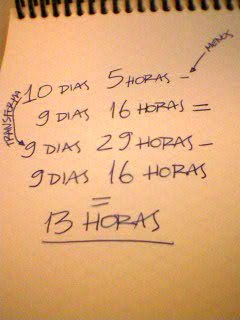 MENOS
10 DIAS 5 HORAS -
9 DIAS 16 HORAS =
TRANSFORMA
9 DIAS 29 HORAS -
9 DIAS 16 HORAS
=
13 HORAS